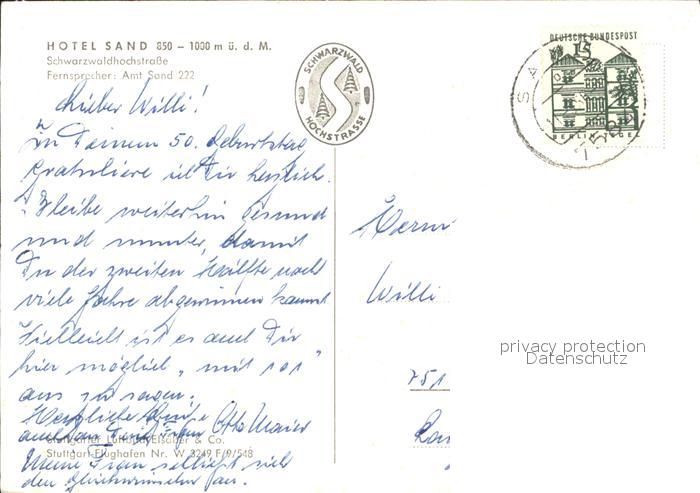 HOTEL SAND 850 – 1000 m ü. d. M.
Schwarzwaldhochstraße
Fernsprecher: Amt Sand 222
SCHWARZWALD
HOCHSTRASSE
DEUTSCHE BUNDESPOST
15
BERLIN TEGEL
Lieber Willi!
Zu Deinem 50. Geburtstag
gratuliere ich Dir herzlich.
Bleibe weiterhin gesund
und munter, damit
Du der zweiten Hälfte noch
viele Jahre abgewinnen kannst
Vielleicht ist es auch Dir
hier möglich, "mit 101"
aus zu sagen.
Herzliche Grüße
auch an Frau Otto Maier
Stuttgarter Luftbild Elsäßer & Co.
Stuttgart-Flughafen Nr. W 3249 F/9/548
Meine Frau schließt sich
den Glückwünschen an.
Herrn
Willi
751
privacy protection
Datenschutz